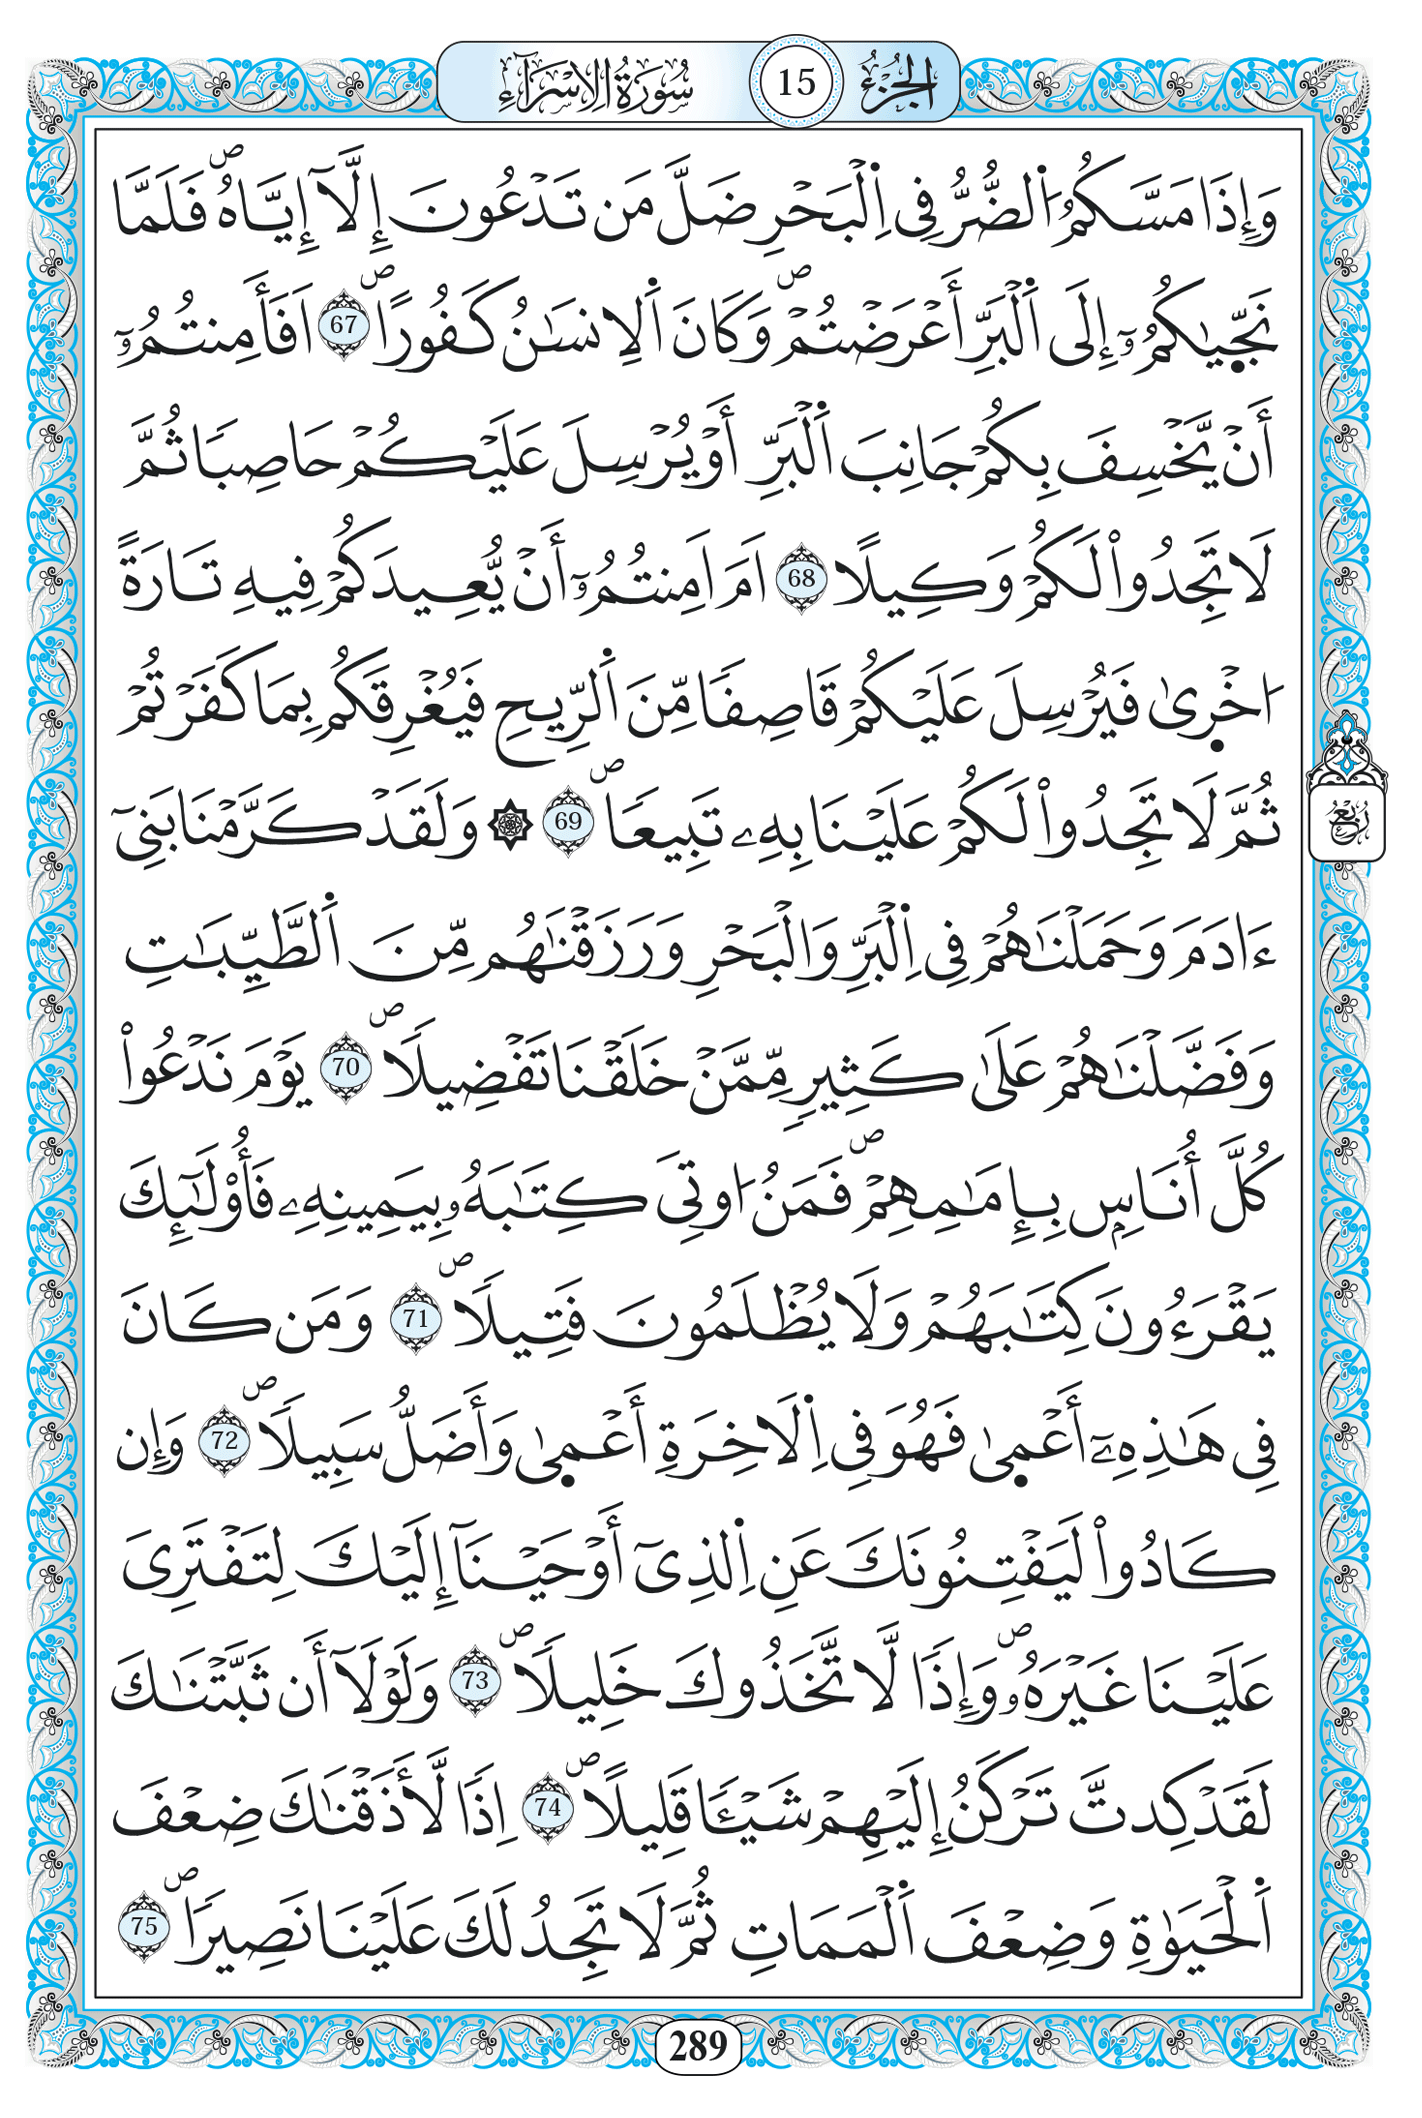 الجزء 15 سورة الإسراء
وَإِذَا مَسَّكُمُ اُ۬لضُّرُّ فِے اِ۬لْبَحْرِ ضَلَّ مَن تَدْعُونَ إِلَّآ إِيَّاهُ ص فَلَمَّا
نَجّ۪يٰكُمُۥٓ إِلَى اَ۬لْبَرِّ أَعْرَضْتُمْ ص وَكَانَ اَ۬لِانسَٰنُ كَفُورًا ص 67 اَفَأَمِنتُمُۥٓ
أَنْ يَّخْسِفَ بِكُمْ جَانِبَ اَ۬لْبَرِّ أَوْ يُرْسِلَ عَلَيْكُمْ حَاصِبٗا ثُمَّ
لَا تَجِدُواْ لَكُمْ وَكِيلًا 68 اَمَ اَمِنتُمُۥٓ أَنْ يُّعِيدَكُمْ فِيهِ تَارَةً
اُخْر۪يٰ فَيُرْسِلَ عَلَيْكُمْ قَاصِفٗا مِّنَ اَ۬لرِّيحِ فَيُغْرِقَكُم بِمَا كَفَرْتُمْ
ثُمَّ لَا تَجِدُواْ لَكُمْ عَلَيْنَا بِهِۦ تَبِيعٗا ص 69 ۞ وَلَقَدْ كَرَّمْنَا بَنِےٓ
ءَادَمَ وَحَمَلْنَٰهُمْ فِے اِ۬لْبَرِّ وَالْبَحْرِ وَرَزَقْنَٰهُم مِّنَ اَ۬لطَّيِّبَٰتِ
وَفَضَّلْنَٰهُمْ عَلَىٰ كَثِيرٖ مِّمَّنْ خَلَقْنَا تَفْضِيلٗا ص 70 يَوْمَ نَدْعُواْ
كُلَّ أُنَاسِۢ بِإِمَٰمِهِمْ ص فَمَنُ اوتِيَ كِتَٰبَهُۥ بِيَمِينِهِۦ فَأُوْلَٰٓئِكَ
يَقْرَءُونَ كِتَٰبَهُمْ وَلَا يُظْلَمُونَ فَتِيلٗا ص 71 وَمَن كَانَ
فِے هَٰذِهِۦٓ أَعْم۪يٰ فَهُوَ فِے اِ۬لَاخِرَةِ أَعْم۪يٰ وَأَضَلُّ سَبِيلٗا ص 72 وَإِن
كَادُواْ لَيَفْتِنُونَكَ عَنِ اِ۬لذِےٓ أَوْحَيْنَآ إِلَيْكَ لِتَفْتَرِيَ
عَلَيْنَا غَيْرَهُۥ ص وَإِذٗا لَّاتَّخَذُوكَ خَلِيلٗا ص 73 وَلَوْلَآ أَن ثَبَّتْنَٰكَ
لَقَدْ كِدتَّ تَرْكَنُ إِلَيْهِمْ شَيْـٔٗا قَلِيلًا ص 74 اِذٗا لَّأَذَقْنَٰكَ ضِعْفَ
اَ۬لْحَيَوٰةِ وَضِعْفَ اَ۬لْمَمَاتِ ثُمَّ لَا تَجِدُ لَكَ عَلَيْنَا نَصِيرٗا ص 75
ربع
289